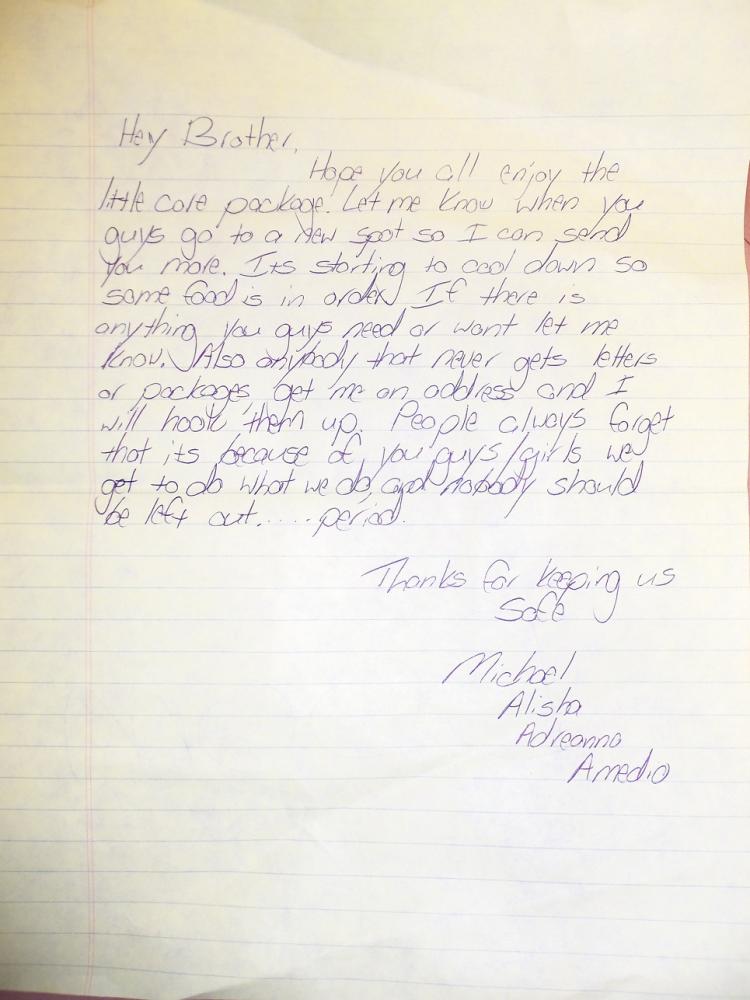 Hey Brother,
Hope you all enjoy the
little care package. Let me know when you
guys go to a new spot so I can send
you more. Its starting to cool down so
some food is in order. If there is
anything you guys need or want let me
know. Also anybody that never gets letters
or packages get me an address and I
will hook them up. People always forget
that its because of you guys/girls we
get to do what we do, and nobody should
be left out..... period.
Thanks for keeping us
Safe
Michael
Alisha
Adreanna
Amedio